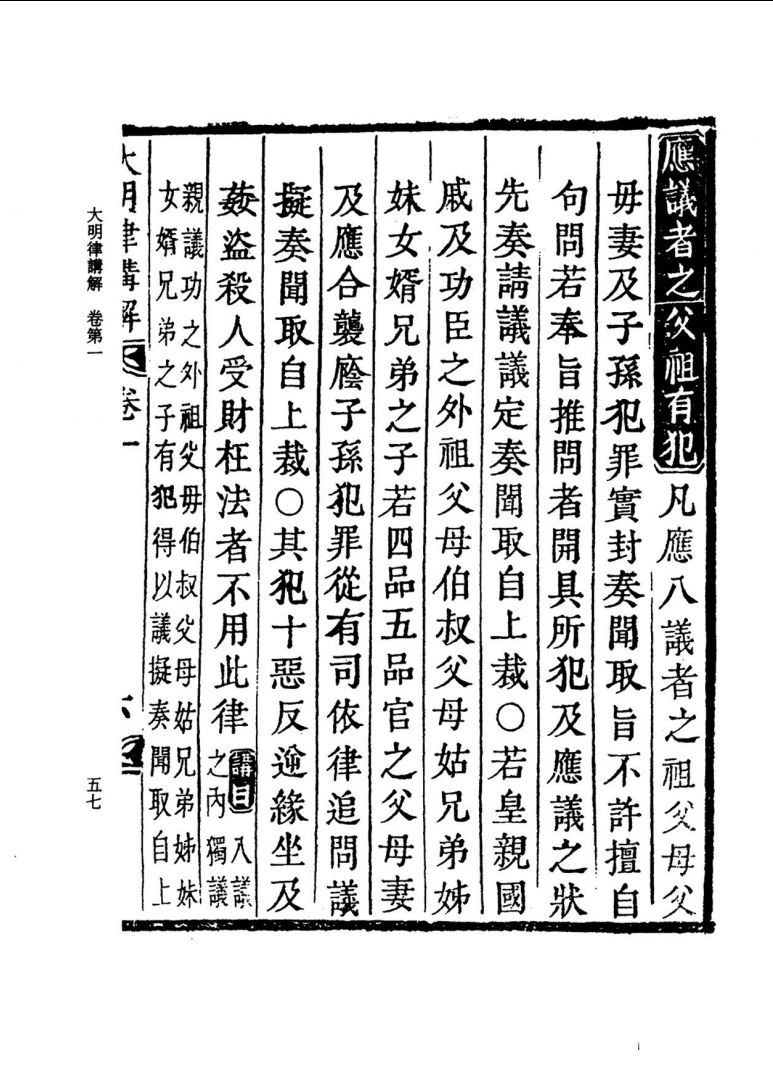 應議者之父祖有犯凡應八議者之祖父母父
母妻及子孫犯罪實封奏聞取旨不許擅自
句問若奉旨推問者開具所犯及應議之狀
先奏請議議定奏聞取自上裁○若皇親國
戚及功臣之外祖父母伯叔父母姑兄弟姊
妹女婿兄弟之子若四品五品官之父母妻
及應合襲廕子孫犯罪從有司依律追問議
擬奏聞取自上裁○其犯十惡反逆緣坐及
姦盜殺人受財枉法者不用此律
講曰入議
之內獨議
親議功之外祖父毋伯叔父母姑兄弟姊妹
女婿兄弟之子有犯得以議擬奏聞取自上
大明律講解 卷一 六
大明律講解 卷第一
五七